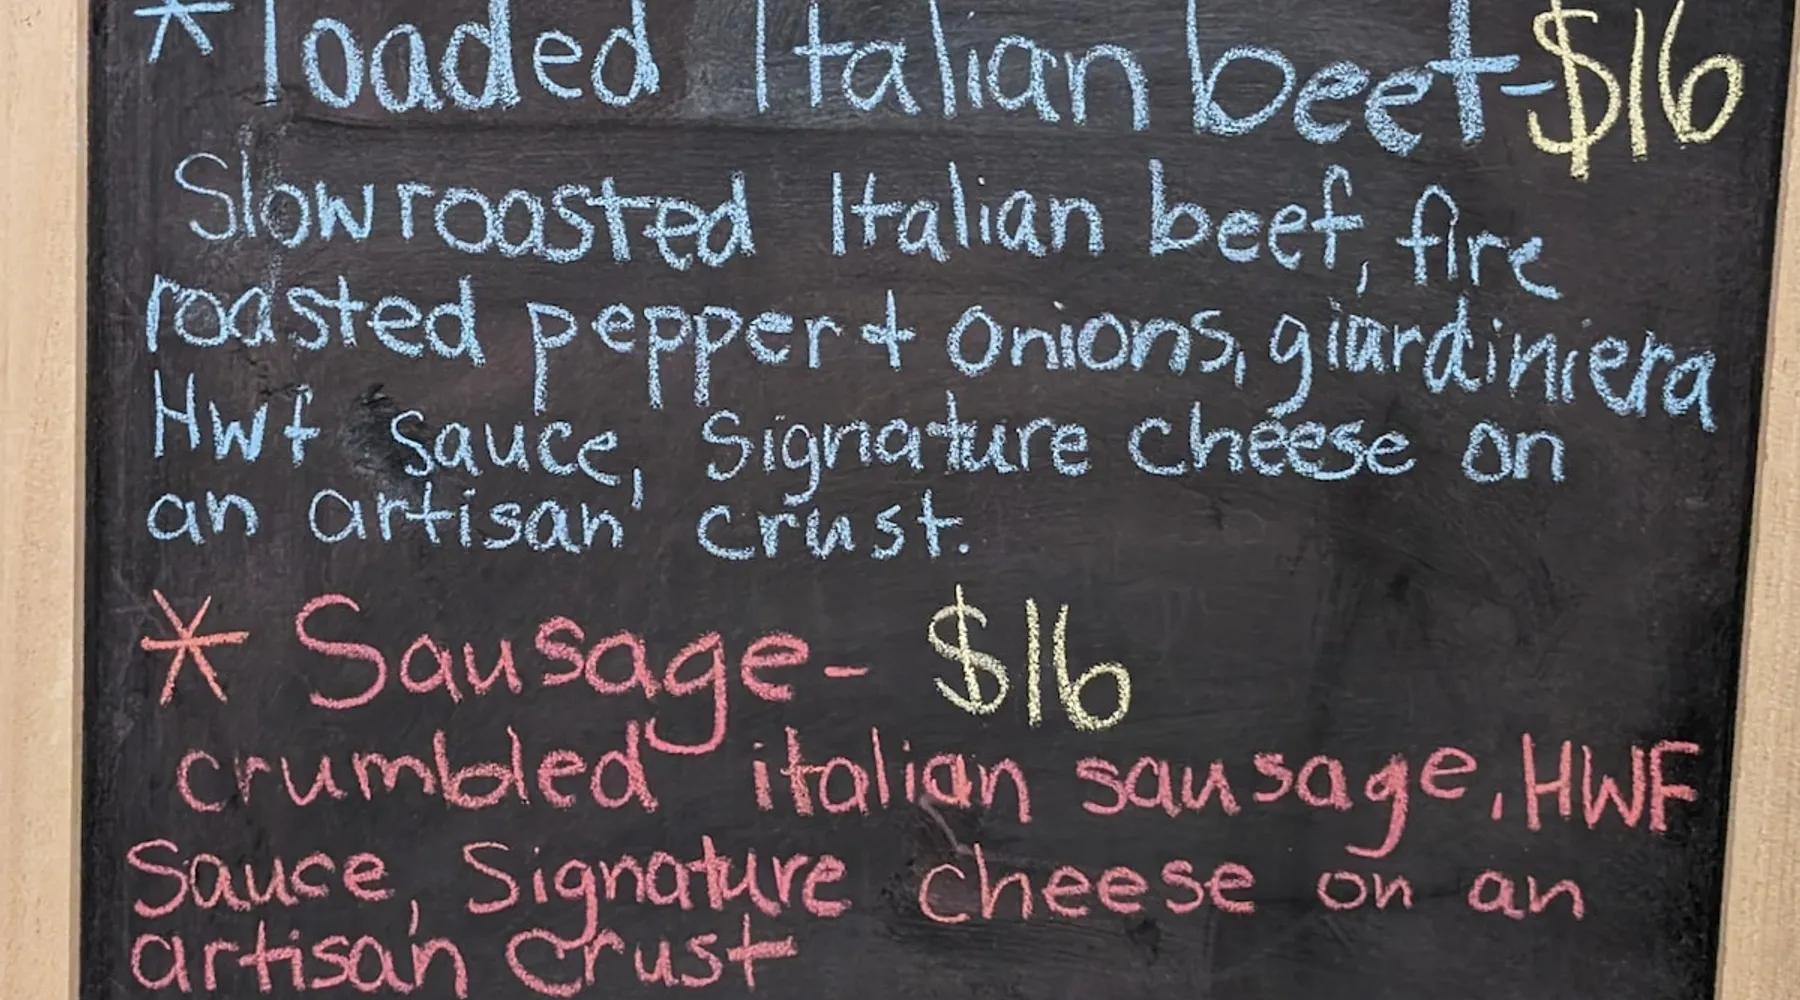 * loaded Italian beef-$16
Slow roasted Italian beef, fire
roasted pepper + onions, giardiniera
Hwf sauce, Signature cheese on
an artisan crust.
* Sausage- $16
crumbled italian sausage, HWF
Sauce, Signature cheese on an
artisan crust